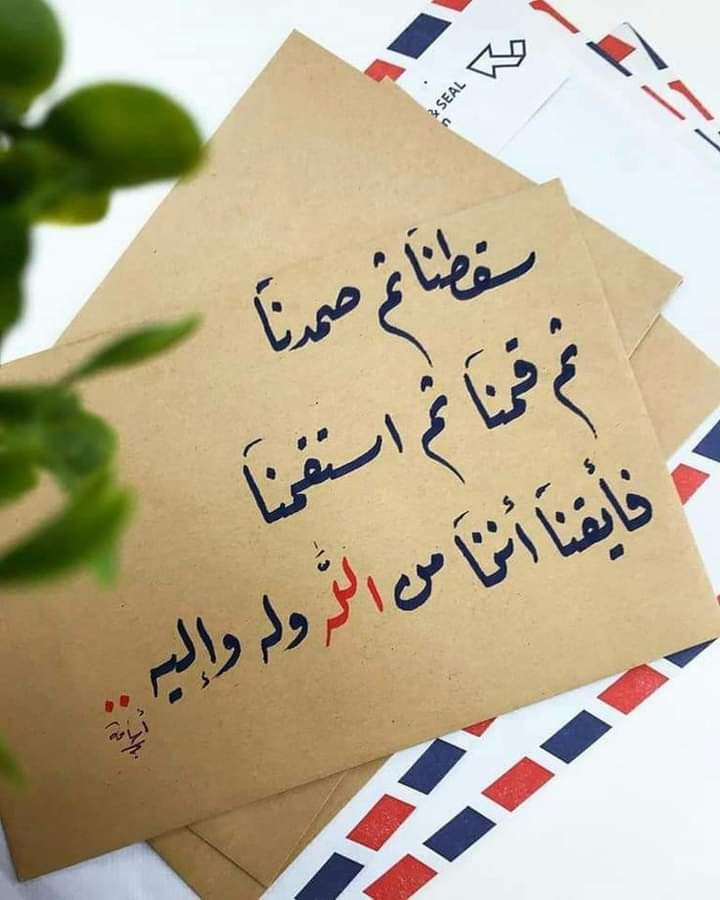 & SEAL
سقطنا ثم صمدنا
ثم قمنا ثم استقمنا
فأيقنا أننا من اللَّه وله وإليه ..